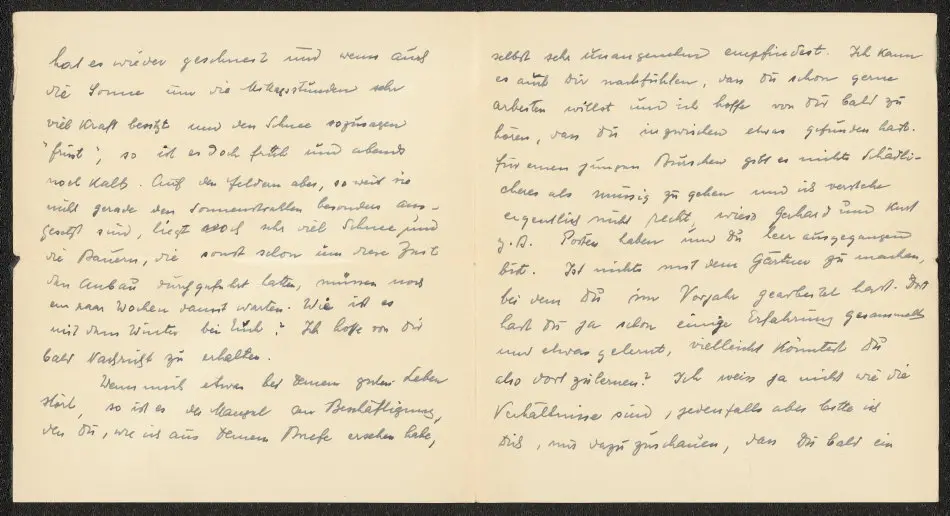 hat es wieder geschneit und wenn auch
die Sonne um die Mittagsstunden sehr
viel Kraft besitzt und den Schnee sozusagen
"frisst", so ist es doch früh und abends
noch kalt. Auf den Feldern aber, so weit sie
nicht gerade den Sonnenstrahlen besonders aus-
gesetzt sind, liegt noch sehr viel Schnee und
die Bauern, die sonst schon um diese Zeit
den Anbau durchgeführt hatten, müssen noch
ein paar Wochen damit warten. Wie ist es
mit dem Winter bei Euch? Ich hoffe von Dir
bald Nachricht zu erhalten.
Wenn mich etwas bei Deinem guten Leben
stört, so ist es der Mangel an Beschäftigung,
den Du, wie ich aus Deinem Briefe ersehen habe,
selbst sehr unangenehm empfindest. Ich kann
es auch Dir nachfühlen, dass Du schon gerne
arbeiten willst und ich hoffe von Dir bald zu
hören, dass Du inzwischen etwas gefunden hast.
Für einen jungen Burschen gibt es nichts Schädli-
cheres als müssig zu gehen und ich verstehe
eigentlich nicht recht, wieso Gerhard und Kurt
z.B. Posten haben und Du leer ausgegangen
bist. Ist nichts mit dem Gärtner zu machen,
bei dem Du im Vorjahr gearbeitet hast. Dort
hast Du ja schon einige Erfahrung gesammelt
und etwas gelernt, vielleicht könntest Du
also dort zulernen? Ich weiss ja nicht wie die
Verhältnisse sind, jedenfalls aber bitte ich
Dich, nur dazuzuschauen, dass Du bald ein